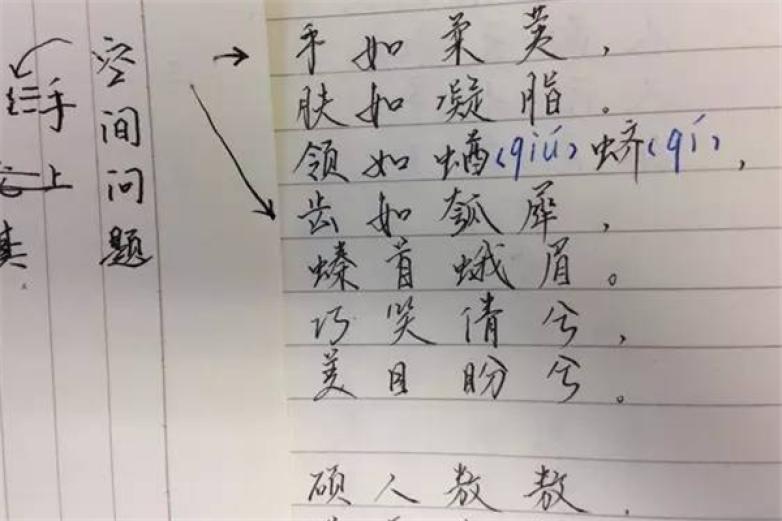 空间问题
手上
手如柔荑，
肤如凝脂。
领如蝤(qiú)蛴(qí)，
齿如瓠犀，
螓首蛾眉。
巧笑倩兮，
美目盼兮。
硕人敖敖，